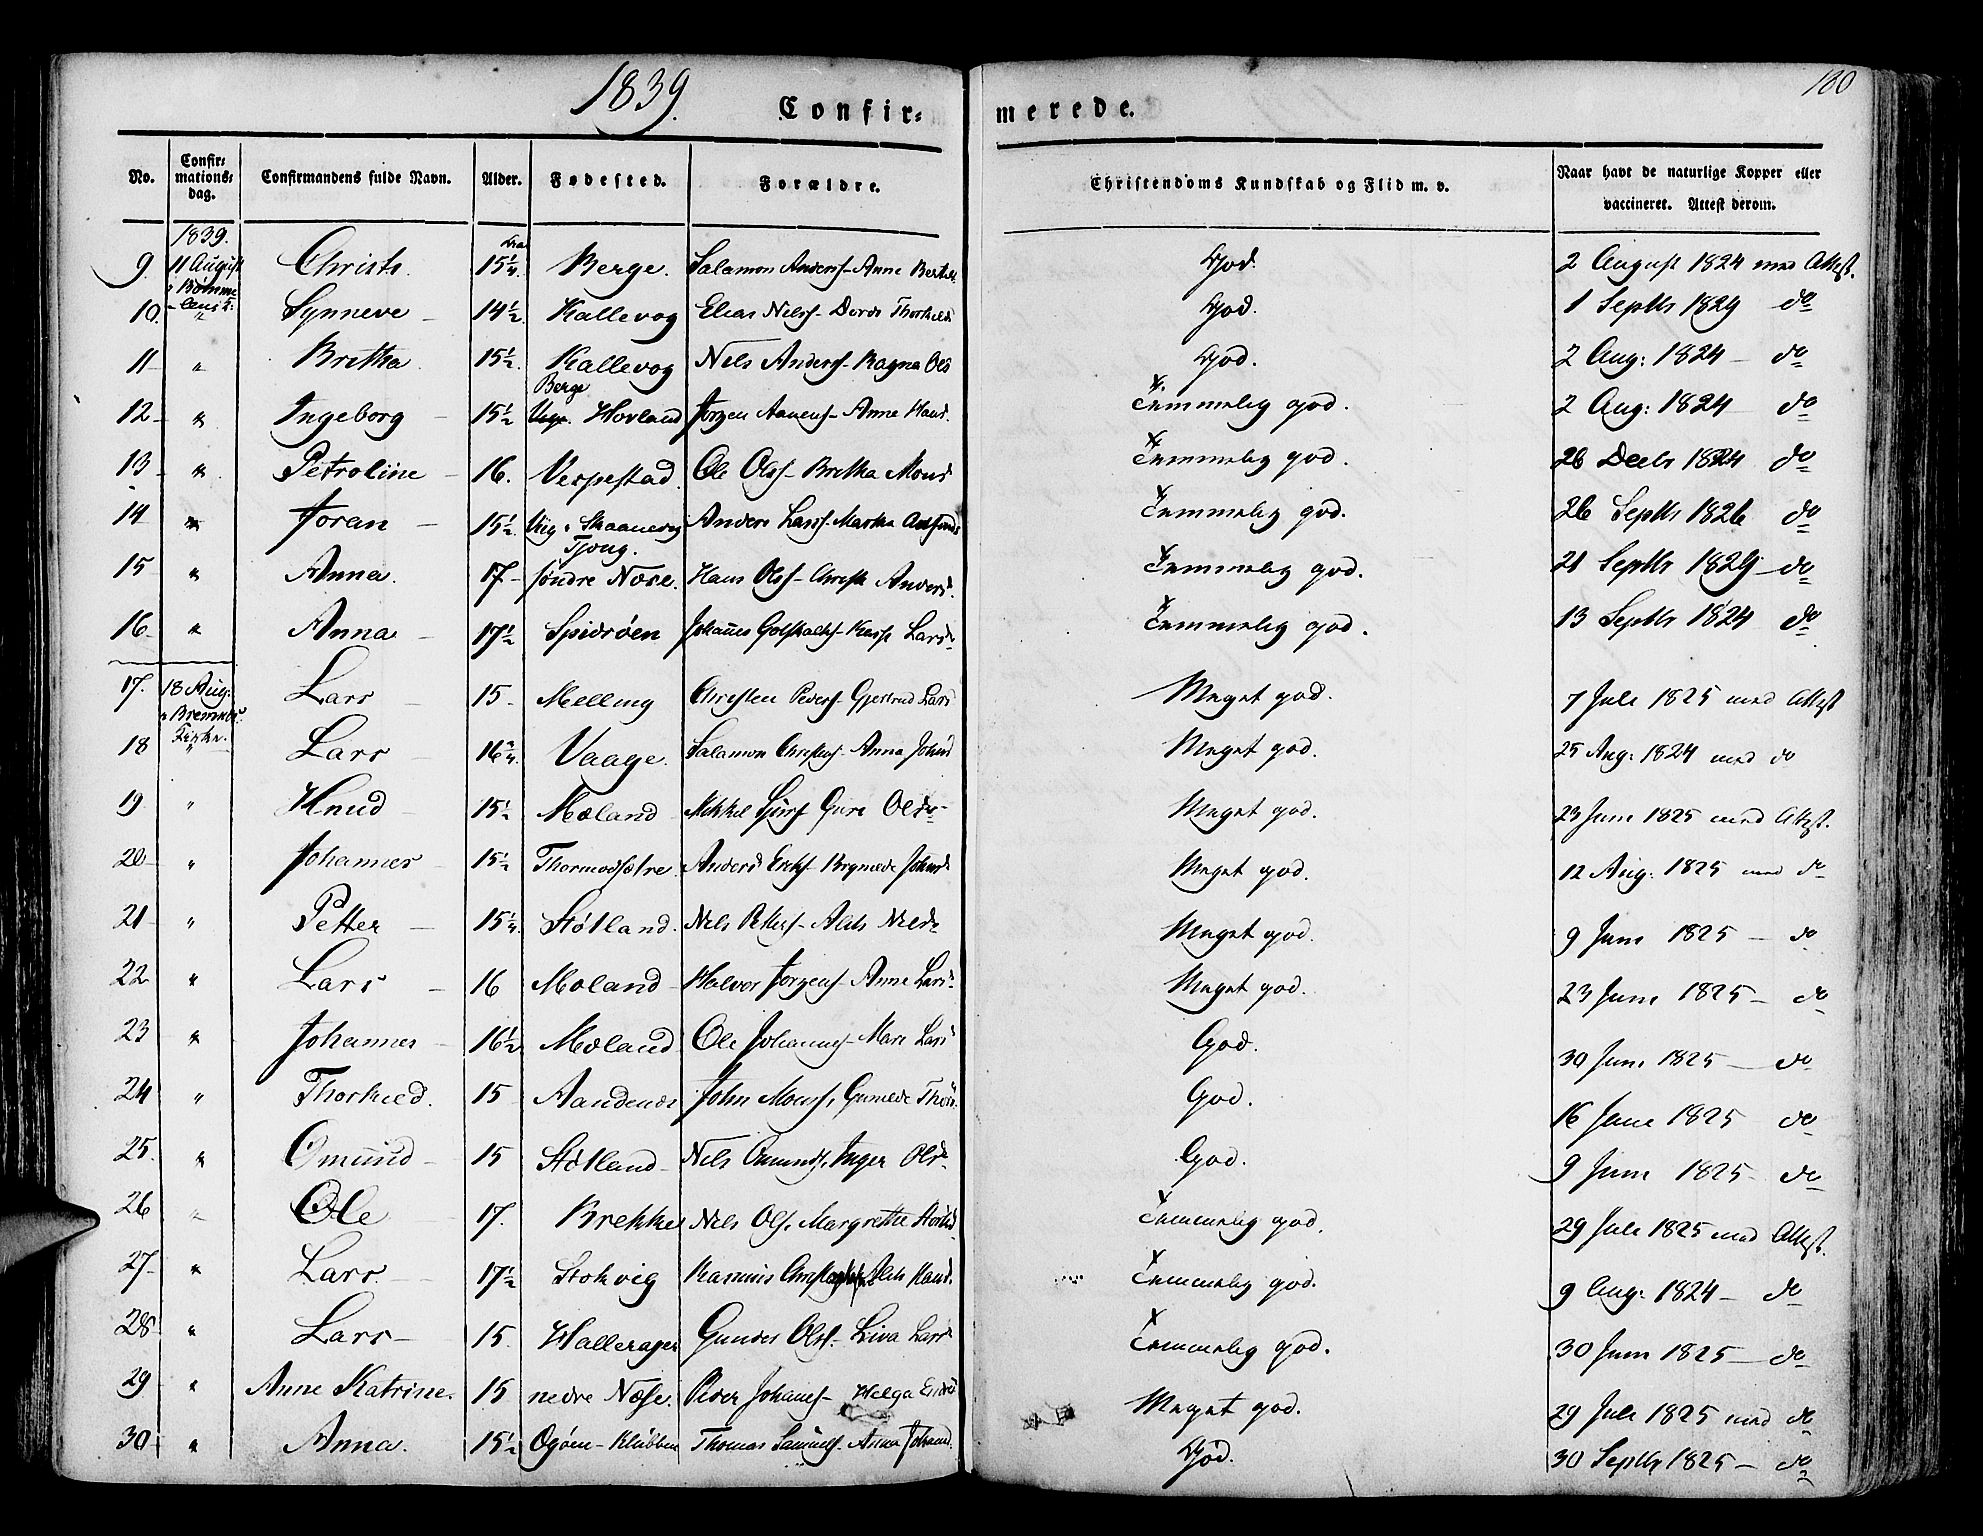 1839.
Confir=
merede.
180
No.
Confirmationsdag.
Confirmandens fulde Navn.
Alder.
Fødested.
Forældre.
Christendoms Kundskab og Flid m. v.
Naar havt de naturlige Kopper eller vaccineret. Attest derom.
1839.
9. 11 August Christi. 15¼ Berge. Salamon Anders- Anne God. 2 August 1824 med Attest.
10. " Synneve 14½ Kallevog Elias Nelss- Dorde God. 1 Septbr 1829 do
11 " Bretha 15½. Kallevog Nels Anderss- Ragna Ols God. 2 Aug: 1824 do
Berge
12 " Ingeborg 15½ Hovland Jørgen Anne Hans. Temmelig god. 2 Aug: 1824 do
13 " Petroline 16. Vespestad. Ole Olss- Bretha Mons Temmelig god. 26 Decbr 1824 do
14 " Joran 15½. Anders Larss- Martha Temmelig god. 26 Septbr 1826 do
Tjong.
15 " Anna. 17 søndre Næse. Hans Olss- Christi Anders. Temmelig god. 21 Septbr 1829 do
16 " Anna 17½ Spidsøen Johannes Lars Temmelig god. 13 Septbr 1824 do
17. 18 Aug: Lars 15. Melling Christen Peders- Gjertrud Lars Meget god. 7 Juli 1825 med Attest
Kirke.
18 " Lars 16¾. Vaage. Salamon Anna Johns Meget god. 25 Aug: 1824 med do
19 " Knud 15½ Mæland Mikkel Guro Olsd Meget god. 23 Juni 1825 med Attest.
20 " Johannes 15½ Thormodsætre. Anders Ericks- Johns Meget god. 12 Aug: 1825 med do
21 " Petter 15¼. Støtland. Nels Petters- Alets Nelsd Meget god. 9 Juni 1825 do
22 " Lars 16 Møland Halvor Jørgens- Anne Larsd Meget god. 23 Juni 1825 do
23 " Johannes 16½ Mæland Ole Johannes- Mari Lars God. 30 Juni 1825 do
24 " Thorkild. 15 Aandenæs John Monss, God. 16 Juni 1825 do
25. " Omund 15 Støtland Nels Omunds, Inger Olsd God. 9 Juni 1825 do
26 " Ole 17. Brekke Nels Ols, Margrethe Temmelig god. 29 Juli 1825 med Attest.
27 " Lars. 17½ Stokvig Rasmus Alets Temmelig god. 9 Aug: 1824 do
28 " Lars 15. Hallerager Gunder Olss- Liva Lars Temmelig god. 30 Juni 1825 do
29 " Anne Katrine. 15 nedre Næse. Peder Johans- Helga Meget god. 29 Juli 1825 med do
30 " Anna. 15½ Ogøen-Klubben Thomas Samuels- Anna Johans. God. 30 Septbr 1825 do